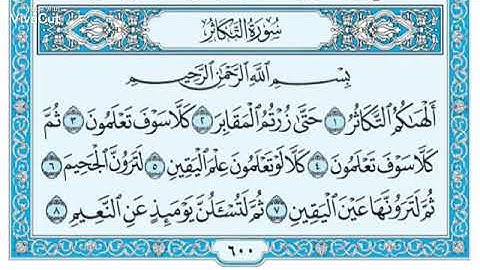 VivaCut
سُورَةُ التَّكَاثُرِ
بِسْمِ اللَّهِ الرَّحْمَٰنِ الرَّحِيمِ
أَلْهَىٰكُمُ التَّكَاثُرُ ١ حَتَّىٰ زُرْتُمُ الْمَقَابِرَ ٢ كَلَّا سَوْفَ تَعْلَمُونَ ٣ ثُمَّ
كَلَّا سَوْفَ تَعْلَمُونَ ٤ كَلَّا لَوْ تَعْلَمُونَ عِلْمَ الْيَقِينِ ٥ لَتَرَوُنَّ الْجَحِيمَ ٦
ثُمَّ لَتَرَوُنَّهَا عَيْنَ الْيَقِينِ ٧ ثُمَّ لَتُسْـَٔلُنَّ يَوْمَئِذٍ عَنِ النَّعِيمِ ٨
٦٠٠